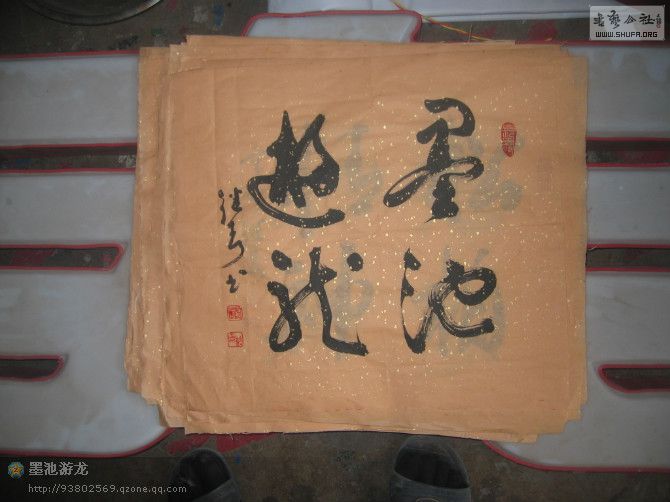 墨池
遊龙
WWW.SHUFA.ORG
墨池游龙
http://93802569.qzone.qq.com